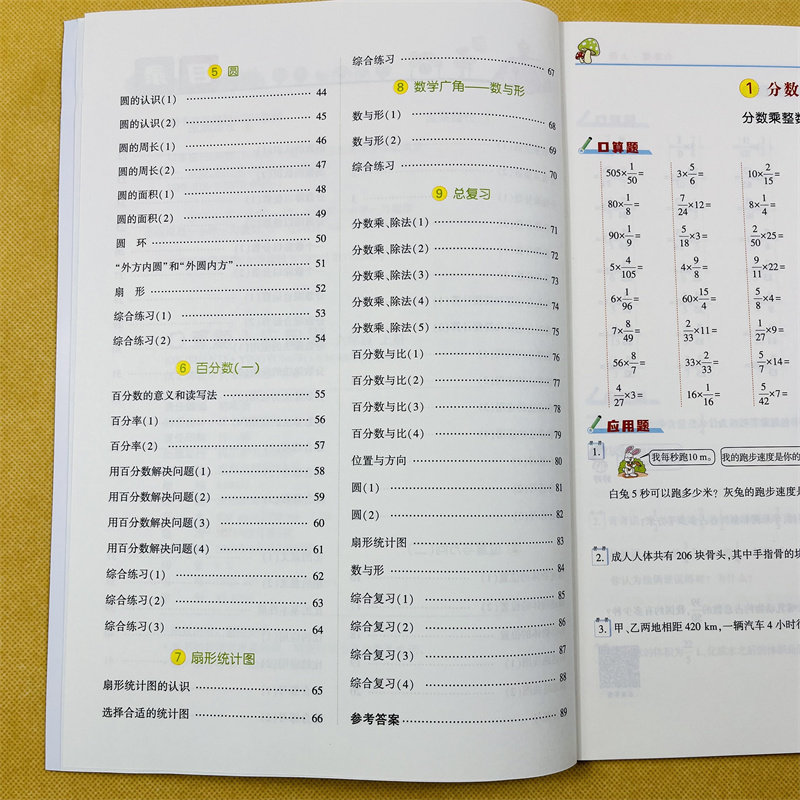 5 圆
圆的认识(1) 44
圆的认识(2) 45
圆的周长(1) 46
圆的周长(2) 47
圆的面积(1) 48
圆的面积(2) 49
圆 环 50
“外方内圆”和“外圆内方” 51
扇 形 52
综合练习(1) 53
综合练习(2) 54
6 百分数(一)
百分数的意义和读写法 55
百分率(1) 56
百分率(2) 57
用百分数解决问题(1) 58
用百分数解决问题(2) 59
用百分数解决问题(3) 60
用百分数解决问题(4) 61
综合练习(1) 62
综合练习(2) 63
综合练习(3) 64
7 扇形统计图
扇形统计图的认识 65
选择合适的统计图 66
综合练习 67
8 数学广角——数与形
数与形(1) 68
数与形(2) 69
综合练习 70
9 总复习
分数乘、除法(1) 71
分数乘、除法(2) 72
分数乘、除法(3) 73
分数乘、除法(4) 74
分数乘、除法(5) 75
百分数与比(1) 76
百分数与比(2) 77
百分数与比(3) 78
百分数与比(4) 79
位置与方向 80
圆(1) 81
圆(2) 82
扇形统计图 83
数与形 84
综合复习(1) 85
综合复习(2) 86
综合复习(3) 87
综合复习(4) 88
参考答案 89
1 分数
分数乘整数
口算题
505×1/50= 3×5/6= 10×2/15=
80×1/8= 7/24×12= 8×1/4=
90×1/9= 5/18×3= 2/50×25=
5×4/105= 4×9/8= 9/11×22=
6×1/96= 60×15/4= 5/8×4=
7×8/49= 2/33×11= 1/27×9=
56×8/7= 33×2/33= 5/7×14=
4/27×3= 16×1/16= 5/42×7=
应用题
1. 我每秒跑10 m。 我的跑步速度是你的
白兔 5 秒可以跑多少米？灰兔的跑步速度是
2. 成人人体共有 206 块骨头,其中手指骨的块
3. 甲、乙两地相距 420 km,一辆汽车 4 小时行